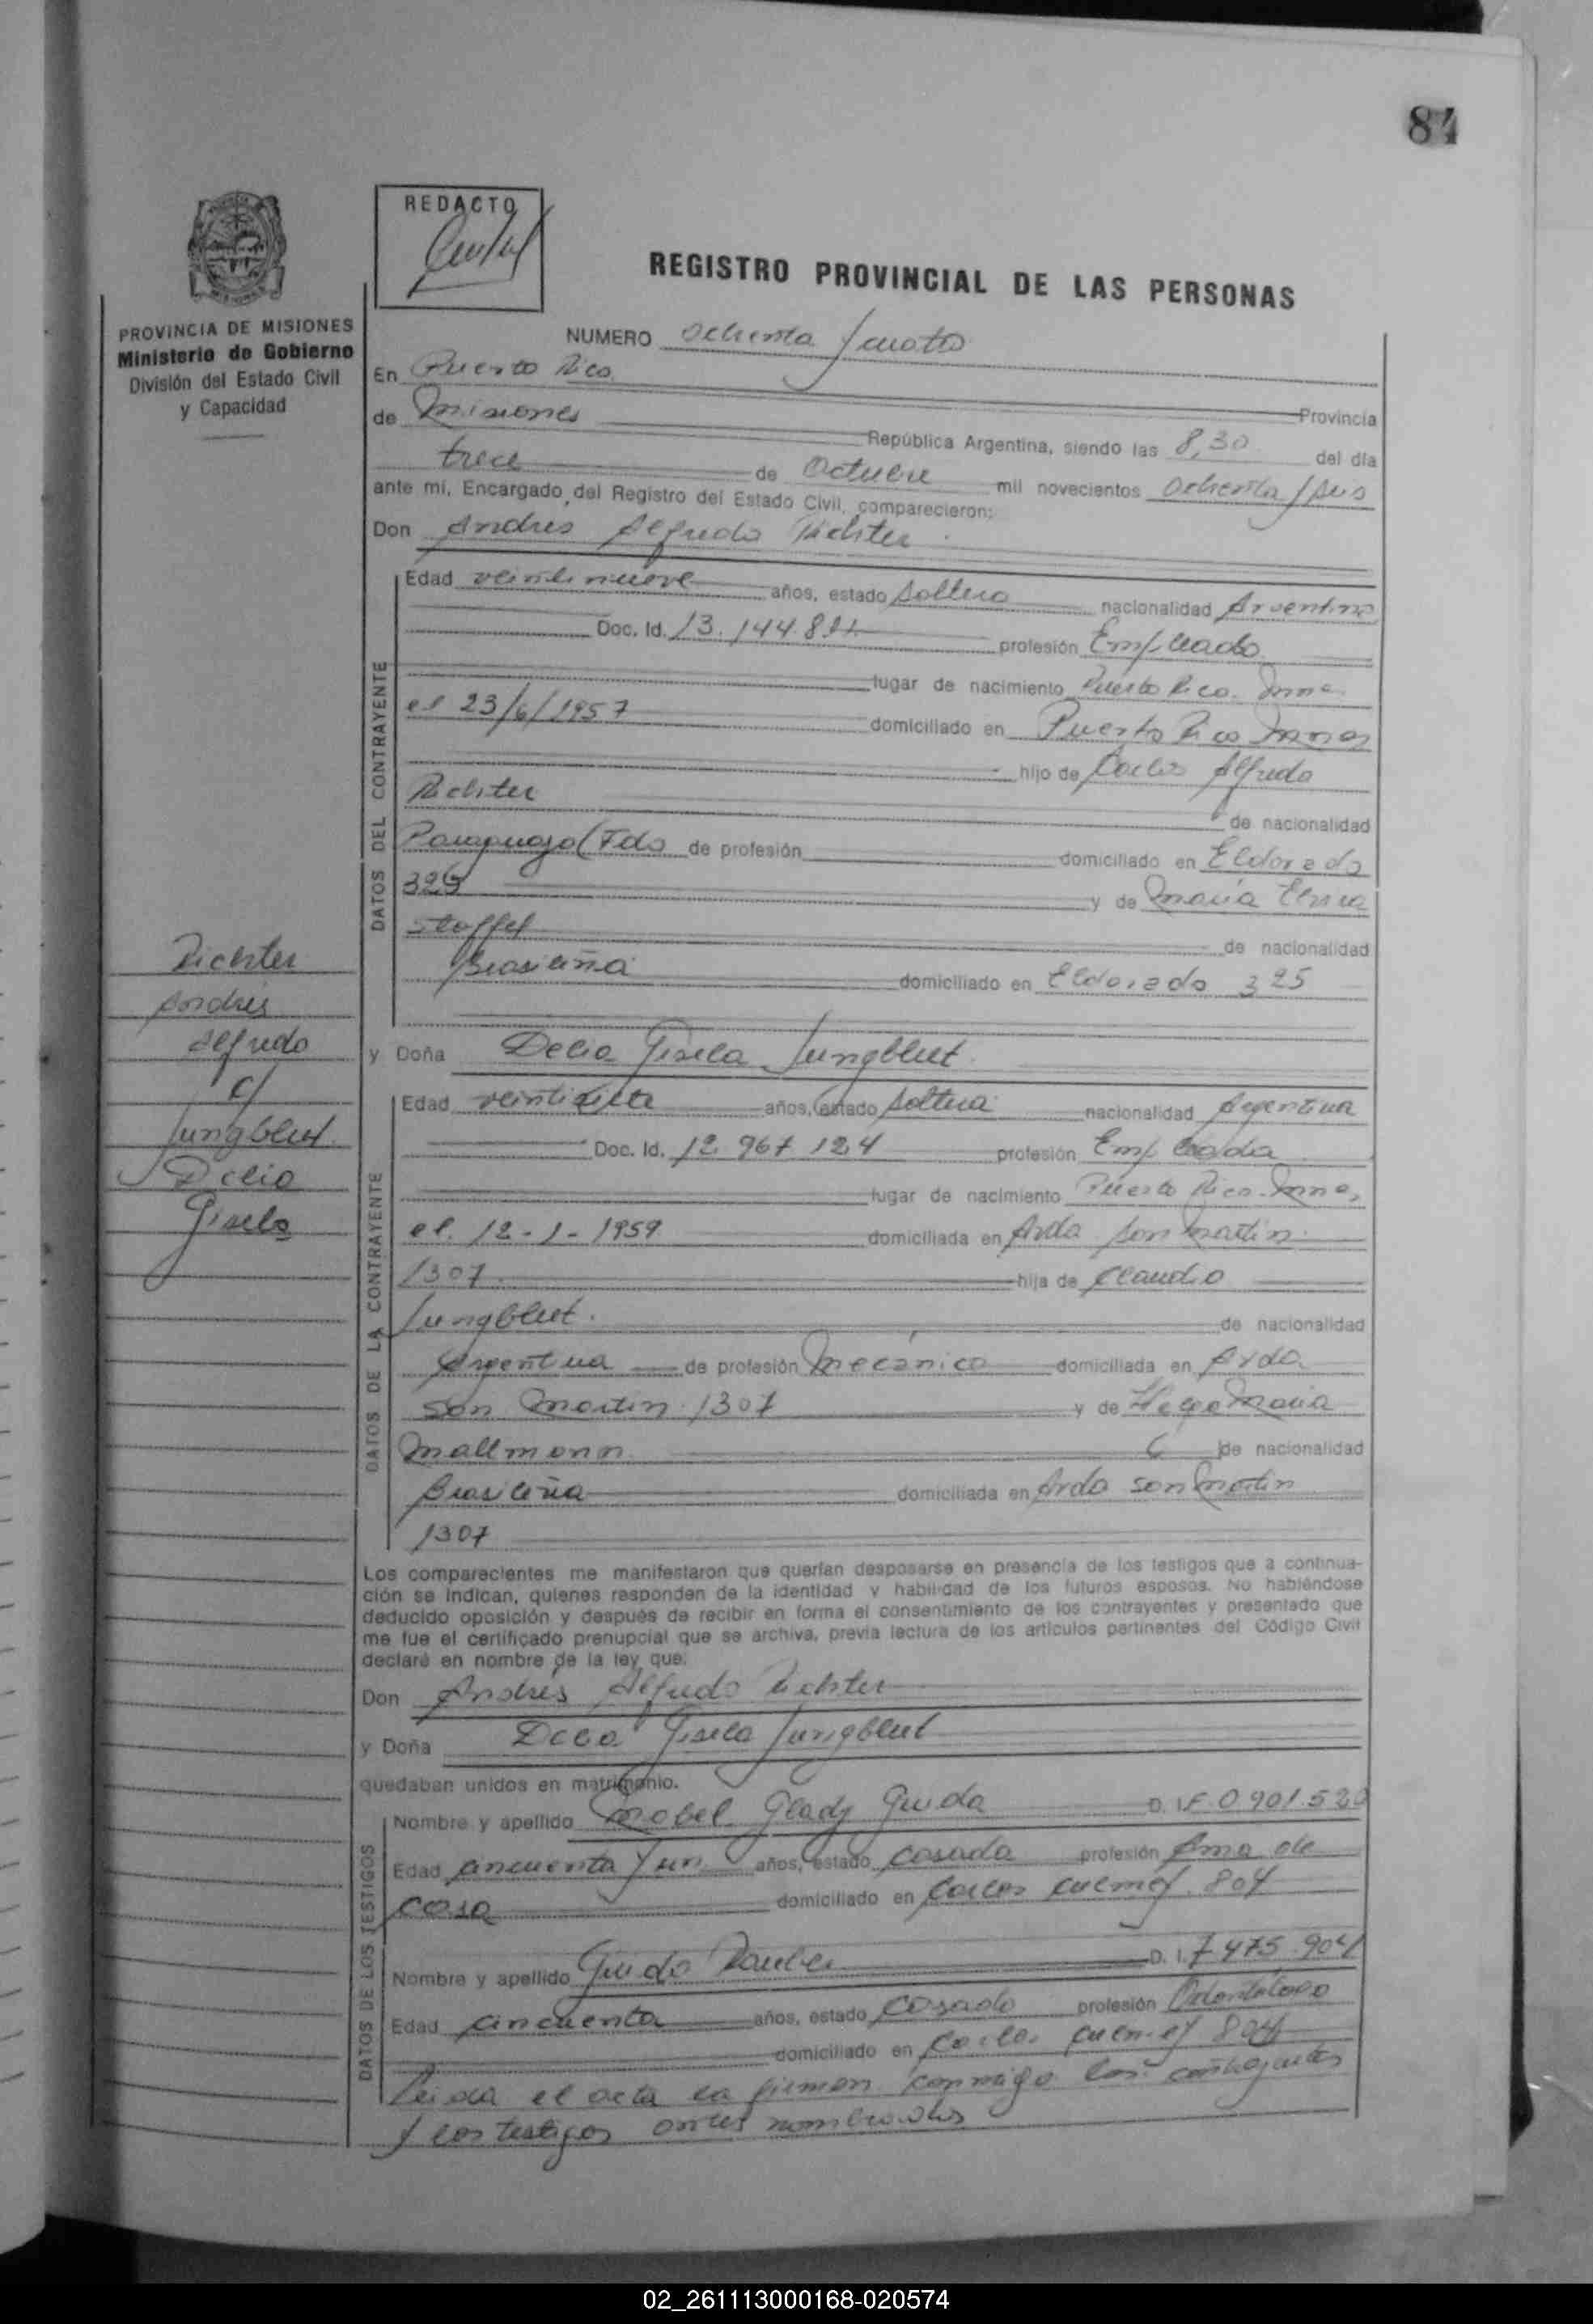 84
REDACTO
REGISTRO PROVINCIAL DE LAS PERSONAS
PROVINCIA DE MISIONES
Ministerio de Gobierno
División del Estado Civil
y Capacidad
NUMERO Ochenta y cuatro
En Puerto Rico
Provincia
de Misiones República Argentina, siendo las 8,30 del día
trece de Octubre mil novecientos ochenta y seis
ante mí, Encargado del Registro del Estado Civil, comparecieron:
Don Andrés Alfredo Richter
DATOS DEL CONTRAYENTE
Edad veintinueve años, estado soltero nacionalidad Argentino
Doc. Id. 13.144.8 profesión Empleado
lugar de nacimiento Puerto Rico. Mnes
el 23/6/1957 domiciliado en Puerto Rico Mnes
hijo de Carlos Alfredo
Richter de nacionalidad
Paraguayo (Fdo de profesión domiciliado en Eldorado
325 y de María Elma
Stoffel de nacionalidad
Brasileña domiciliado en Eldorado 325
Richter
Andrés
Alfredo
c/
Jungblut
Delia
Gisela
y Doña Delia Gisela Jungblut
DATOS DE LA CONTRAYENTE
Edad veintisiete años, estado soltera nacionalidad Argentina
Doc. Id. 12 967 124 profesión Empleada
lugar de nacimiento Puerto Rico-Mnes,
el. 12-1-1959 domiciliada en Avda San Martín
1307. hija de Claudio
Jungblut. de nacionalidad
Argentina de profesión Mecánico domiciliada en Avda
San Martin 1307 y de María
Mallmann de nacionalidad
Brasileña domiciliada en Avda San Martin
1307
Los comparecientes me manifestaron que querían desposarse en presencia de los testigos que a continua-
ción se indican, quienes responden de la identidad y habilidad de los futuros esposos. No habiéndose
deducido oposición y después de recibir en forma el consentimiento de los contrayentes y presentado que
me fue el certificado prenupcial que se archiva, previa lectura de los artículos pertinentes del Código Civil
declaré en nombre de la ley que:
Don Andrés Alfredo Richter
y Doña Delia Gisela Jungblut
quedaban unidos en matrimonio.
DATOS DE LOS TESTIGOS
Nombre y apellido Mabel Glady Guida D. I. F.0 901.520
Edad cincuenta y un años, estado casada profesión Ama de
casa domiciliado en Carlos Culmey 804
Nombre y apellido Guido Rauber D. I. 7 475.904
Edad cincuenta años, estado casado profesión Odontólogo
domiciliado en Carlos Culmey 804
Leida el acta la firman conmigo los contrayentes
y los testigos antes nombrados
02_261113000168-020574